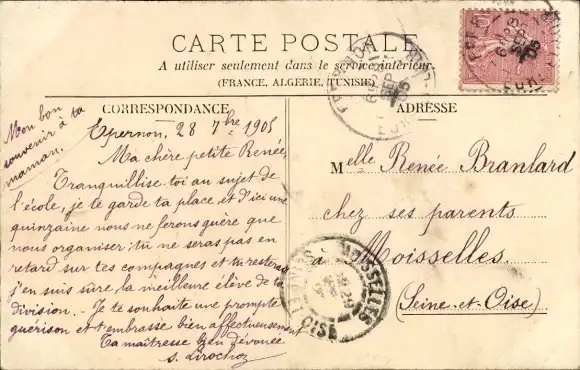 CARTE POSTALE
A utiliser seulement dans le service intérieur
(FRANCE, ALGERIE, TUNISIE)
CORRESPONDANCE
ADRESSE
Mon bon
souvenir à ta
maman.
Epernon, 28 7bre 1905
Ma chère petite Renée,
Tranquillise-toi au sujet de
l'école, je te garde ta place, et d'ici une
quinzaine nous ne ferons guère que
nous organiser; tu ne seras pas en
retard sur tes compagnes et tu resteras
j'en suis sûre la meilleure élève de ta
division. - Je te souhaite une prompte
guérison et t'embrasse bien affectueusement
Ta maîtresse bien dévouée
Melle Renée Branlard
chez ses parents
à Moisselles.
(Seine-et-Oise)
MOISSELLES